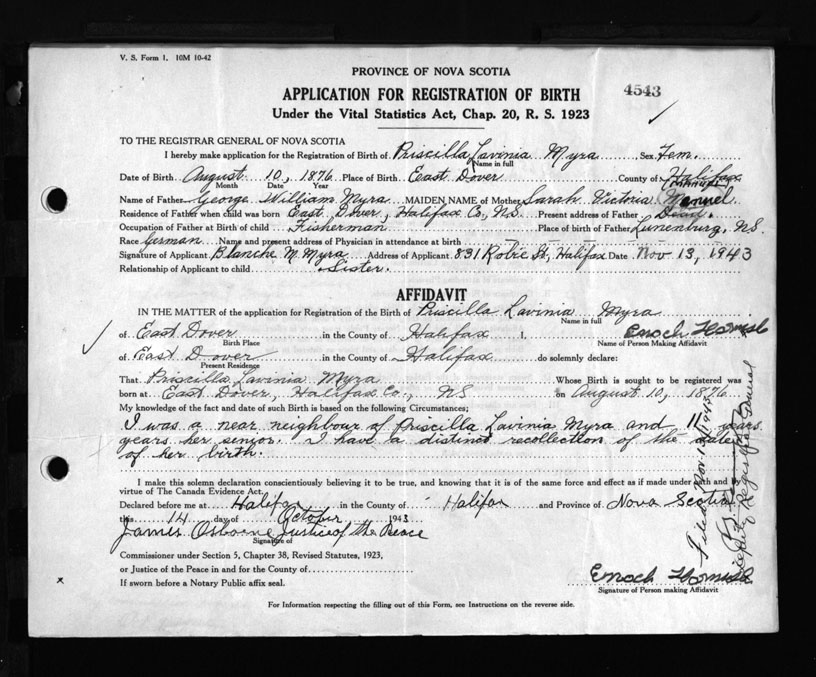 V. S. Form 1. 10M 10-42
PROVINCE OF NOVA SCOTIA
4543
APPLICATION FOR REGISTRATION OF BIRTH
Under the Vital Statistics Act, Chap. 20, R. S. 1923
TO THE REGISTRAR GENERAL OF NOVA SCOTIA
I hereby make application for the Registration of Birth of Priscilla Lavinia Myra Sex Fem.
Name in full
Date of Birth August 10, 1876 Place of Birth East Dover County of Halifax
Month Date Year
Name of Father George William Myra MAIDEN NAME of Mother Sarah Victoria Manuel
Residence of Father when child was born East Dover, Halifax Co., N.S. Present address of Father Dead.
Occupation of Father at Birth of child Fisherman Place of birth of Father Lunenburg, N.S.
Race German Name and present address of Physician in attendance at birth
Signature of Applicant Blanche M. Myra Address of Applicant 831 Robie St, Halifax Date Nov 13, 1943
Relationship of Applicant to child Sister.
AFFIDAVIT
IN THE MATTER of the application for Registration of the Birth of Priscilla Lavinia Myra
Name in full
of East Dover in the County of Halifax I, Enoch
Birth Place Name of Person Making Affidavit
of East Dover in the County of Halifax do solemnly declare:
Present Residence
That Priscilla Lavinia Myra Whose Birth is sought to be registered was
born at East Dover, Halifax Co., NS on August 10, 1876
My knowledge of the fact and date of such Birth is based on the following Circumstances;
I was a near neighbour of Priscilla Lavinia Myra and 11 years
years her senior. I have a distinct recollection of the date
of her birth.
I make this solemn declaration conscientiously believing it to be true, and knowing that it is of the same force and effect as if made under oath and by
virtue of The Canada Evidence Act.
Declared before me at Halifax in the County of Halifax and Province of Nova Scotia
this 14 day of October 1943
James Osborne Justice of the Peace
Signature of
Commissioner under Section 5, Chapter 38, Revised Statutes, 1923,
or Justice of the Peace in and for the County of
If sworn before a Notary Public affix seal.
Enoch
Signature of Person making Affidavit
For Information respecting the filling out of this Form, see Instructions on the reverse side.
Filed Nov. 13/1943
Deputy Registrar General